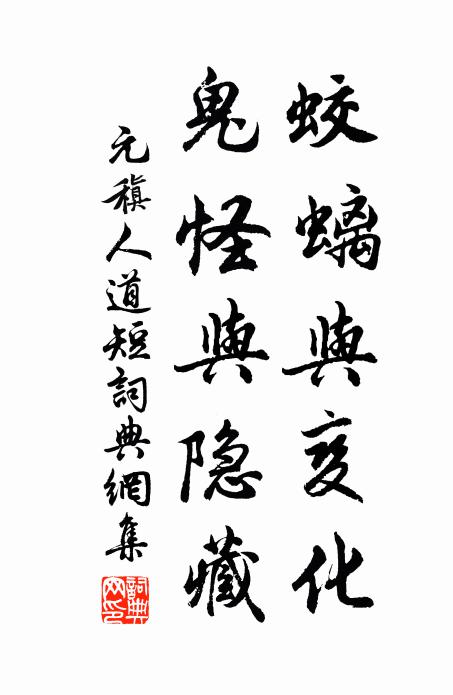 蛟螭與变化
鬼怪與隐藏
元稹人道短詞典網集
詞典網印